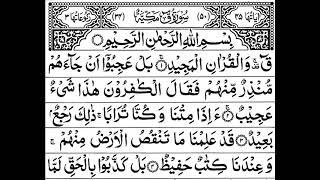 اٰیَاتُهَا ۴۵ (۵۰) سُوْرَةُ قٓ مَكِّیَّةٌ (۳۴) رُكُوْعَاتُهَا ۳
بِسْمِ اللّٰهِ الرَّحْمٰنِ الرَّحِیْمِ
قٓ ۚ وَالْقُرْاٰنِ الْمَجِیْدِ ۝۱ بَلْ عَجِبُوْۤا اَنْ جَآءَهُمْ
مُّنْذِرٌ مِّنْهُمْ فَقَالَ الْكٰفِرُوْنَ هٰذَا شَیْءٌ
عَجِیْبٌ ۝۲ ءَاِذَا مِتْنَا وَكُنَّا تُرَابًا ۚ ذٰلِكَ رَجْعٌۢ
بَعِیْدٌ ۝۳ قَدْ عَلِمْنَا مَا تَنْقُصُ الْاَرْضُ مِنْهُمْ ۚ
وَعِنْدَنَا كِتٰبٌ حَفِیْظٌ ۝۴ بَلْ كَذَّبُوْا بِالْحَقِّ لَمَّا